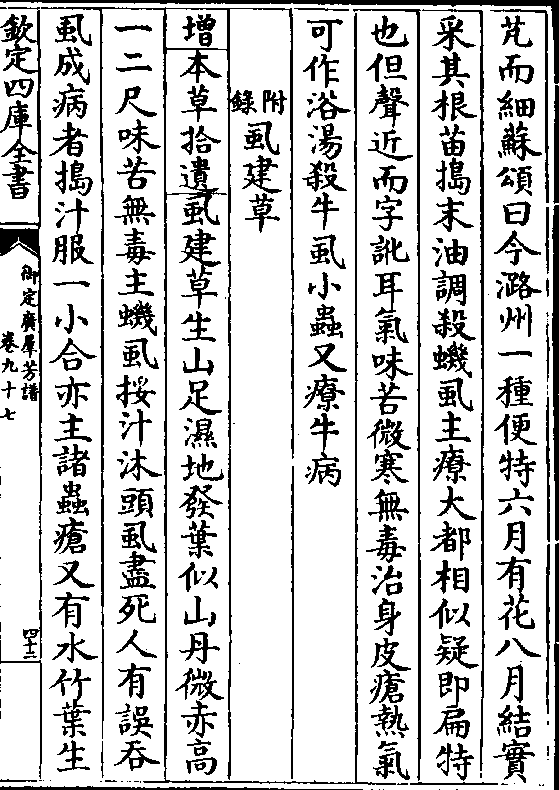 芃而細蘇頌曰今潞州一種便特六月有花八月結實
采其根苗搗末油調殺蟣虱主療大都相似疑即扁特
也但聲近而字訛耳氣味苦微寒無毒治身皮瘡熱氣
可作浴湯殺牛虱小蟲又療牛病
附錄
虱建草
增本草拾遺虱建草生山足濕地發葉似山丹微赤高
一二尺味苦無毒主蟣虱挼汁沐頭虱盡死人有誤吞
虱成病者搗汁服一小合亦主諸蟲瘡又有水竹葉生
欽定四庫全書
御定廣羣芳譜
卷九十七
四十三